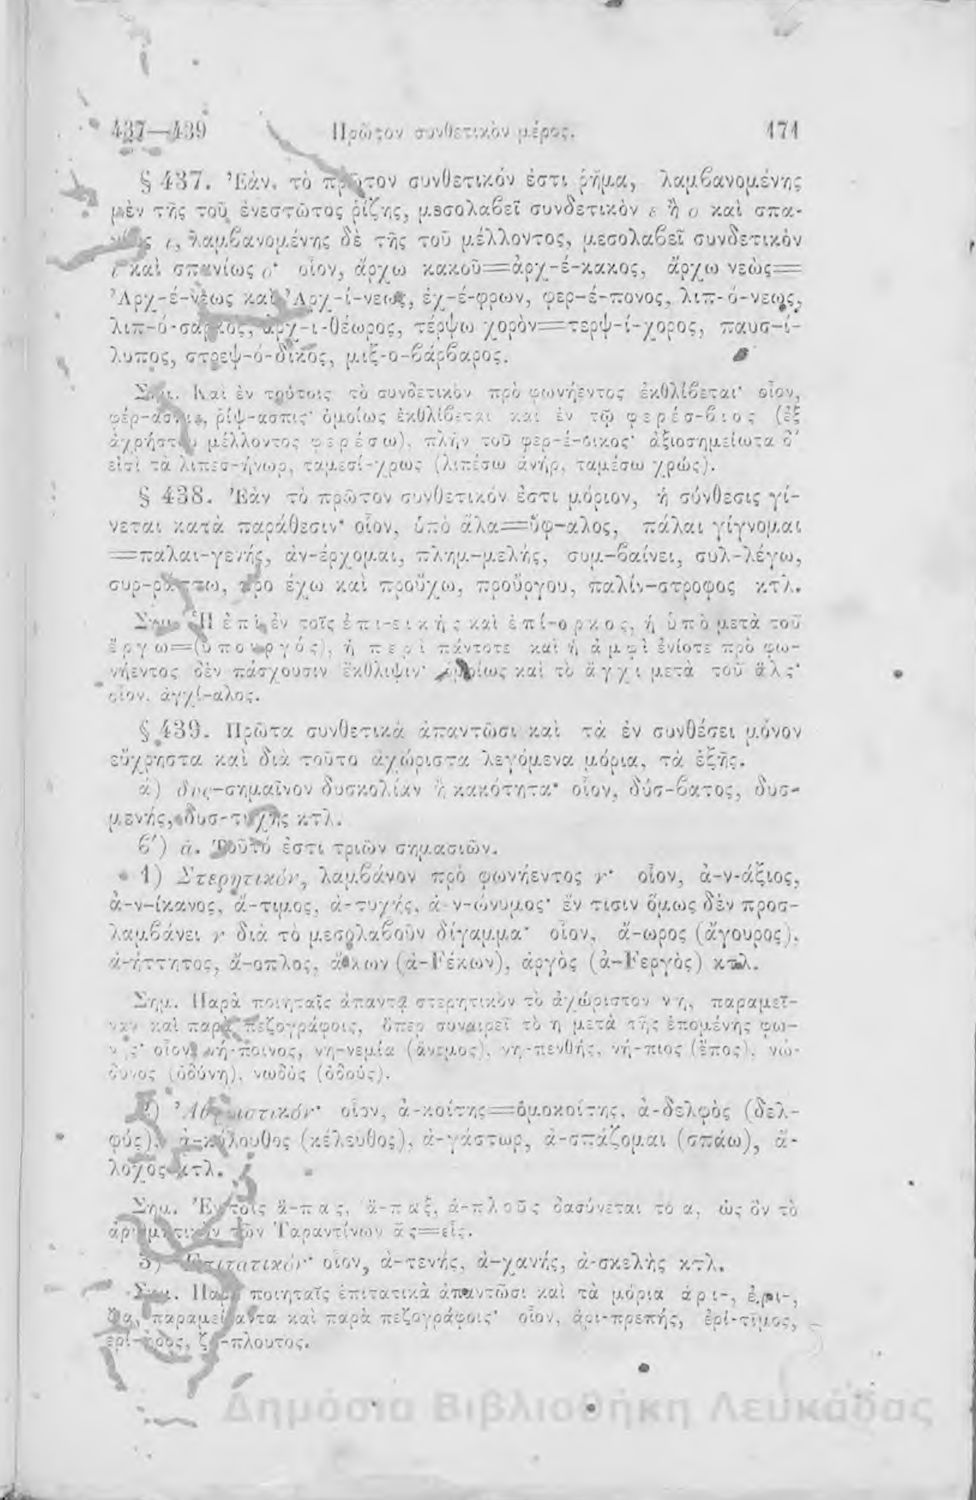 437—439 Πρῶτον συνθετικὸν μέρος. 171
§ 437. Ἐὰν τὸ πρῶτον συνθετικόν ἐστι ῥῆμα, λαμβανομένης
μὲν τῆς τοῦ ἐνεστῶτος ῥίζης, μεσολαβεῖ συνδετικὸν ε ἢ ο καὶ σπα-
ι, λαμβανομένης δὲ τῆς τοῦ μέλλοντος, μεσολαβεῖ συνδετικὸν
ι καὶ σπανίως ο· οἷον, ἄρχω κακοῦ=ἀρχ-έ-κακος, ἄρχω νεὼς=
Ἀρχ-έ-νεως καὶ Ἀρχ-ί-νεως, ἐχ-έ-φρων, φερ-έ-πονος, λιπ-ό-νεως,
λιπ-ό-σαρκος, ἀρχ-ι-θέωρος, τέρψω χορὸν=τερψ-ί-χορος, παυσ-ί-
λυπος, στρεψ-ό-δικος, μιξ-ο-βάρβαρος.
Σημ. Καὶ ἐν τούτοις τὸ συνδετικὸν πρὸ φωνήεντος ἐκθλίβεται· οἷον,
φέρ-ασπις, ῥίψ-ασπις· ὁμοίως ἐκθλίβεται καὶ ἐν τῷ φερέσ-βιος (ἐξ
ἀχρήστου μέλλοντος φερέσω), πλὴν τοῦ φερ-έ-οικος· ἀξιοσημείωτα δ'
εἰσὶ τὰ λιπεσ-ήνωρ, ταμεσί-χρως (λιπέσω ἀνήρ, ταμέσω χρώς).
§ 438. Ἐὰν τὸ πρῶτον συνθετικόν ἐστι μόριον, ἡ σύνθεσις γί-
νεται κατὰ παράθεσιν· οἷον, ὑπὸ ἅλα=ὕφ-αλος, πάλαι γίγνομαι
=παλαι-γενής, ἀν-έρχομαι, πλημ-μελής, συμ-βαίνει, συλ-λέγω,
συρ-ράπτω, προ έχω καὶ προὔχω, προὔργου, παλίν-στροφος κτλ.
Σημ. Ἡ ἐπὶ ἐν τοῖς ἐπι-εικής καὶ ἐπί-ορκος, ἡ ὑπὸ μετὰ τοῦ
ἔργω=(ὑποεργός), ἡ περὶ πάντοτε καὶ ἡ ἀμφὶ ἐνίοτε πρὸ φω-
νήεντος δὲν πάσχουσιν ἔκθλιψιν· ὁμοίως καὶ τὸ ἄγχι μετὰ τοῦ ἅλς·
οἷον, ἀγχί-αλος.
§ 439. Πρῶτα συνθετικὰ ἀπαντῶσι καὶ τὰ ἐν συνθέσει μόνον
εὔχρηστα καὶ διὰ τοῦτο ἀχώριστα λεγόμενα μόρια, τὰ ἑξῆς.
ά) δυς-σημαῖνον δυσκολίαν ἢ κακότητα· οἷον, δύσ-βατος, δυσ-
μενής, δυσ-τυχής κτλ.
β') ἀ. Τοῦτό ἐστι τριῶν σημασιῶν.
1) Στερητικόν, λαμβάνον πρὸ φωνήεντος ν· οἷον, ἀ-ν-άξιος,
ἀ-ν-ίκανος, ἄ-τιμος, ἀ-τυχής, ἀ-ν-ώνυμος· ἔν τισιν ὅμως δὲν προσ-
λαμβάνει ν διὰ τὸ μεσολαβοῦν δίγαμμα· οἷον, ἄ-ωρος (ἄγουρος),
ἀ-ήττητος, ἄ-οπλος, ἄκων (ἀ-Fέκων), ἀργὸς (ἀ-Fεργὸς) κτλ.
Σημ. Παρὰ ποιηταῖς ἀπαντᾷ στερητικὸν τὸ ἀχώριστον νη, παραμεῖ-
ναν καὶ παρὰ πεζογράφοις, ὅπερ συναιρεῖ τὸ η μετὰ τῆς ἑπομένης φω-
οἷον νή-ποινος, νη-νεμία (ἄνεμος), νη-πενθής, νή-πιος (ἔπος), νώ-
δυνος (ὀδύνη), νωδὸς (ὀδούς).
2) Ἀθροιστικόν· οἷον, ἀ-κοίτης=ὁμοκοίτης, ἀ-δελφὸς (δελ-
φύς), ἀ-κόλουθος (κέλευθος), ἀ-γάστωρ, ἀ-σπάζομαι (σπάω), ἄ-
λοχος κτλ.
Σημ. Ἐν τοῖς ἅ-πας, ἅ-παξ, ἁ-πλοῦς δασύνεται τὸ α, ὡς ὂν τὸ
ἀριθμητικὸν τῶν Ταραντίνων ἇς=εἷς.
3) Ἐπιτατικόν· οἷον, ἀ-τενής, ἀ-χανής, ἀ-σκελὴς κτλ.
Σημ. Παρὰ ποιηταῖς ἐπιτατικὰ ἀπαντῶσι καὶ τὰ μόρια ἀρι-, ἐρι-,
ζα, παραμείναντα καὶ παρὰ πεζογράφοις· οἷον, ἀρι-πρεπής, ἐρί-τιμος,
ζά-πλουτος.
Δημόσια Βιβλιοθήκη Λευκάδας